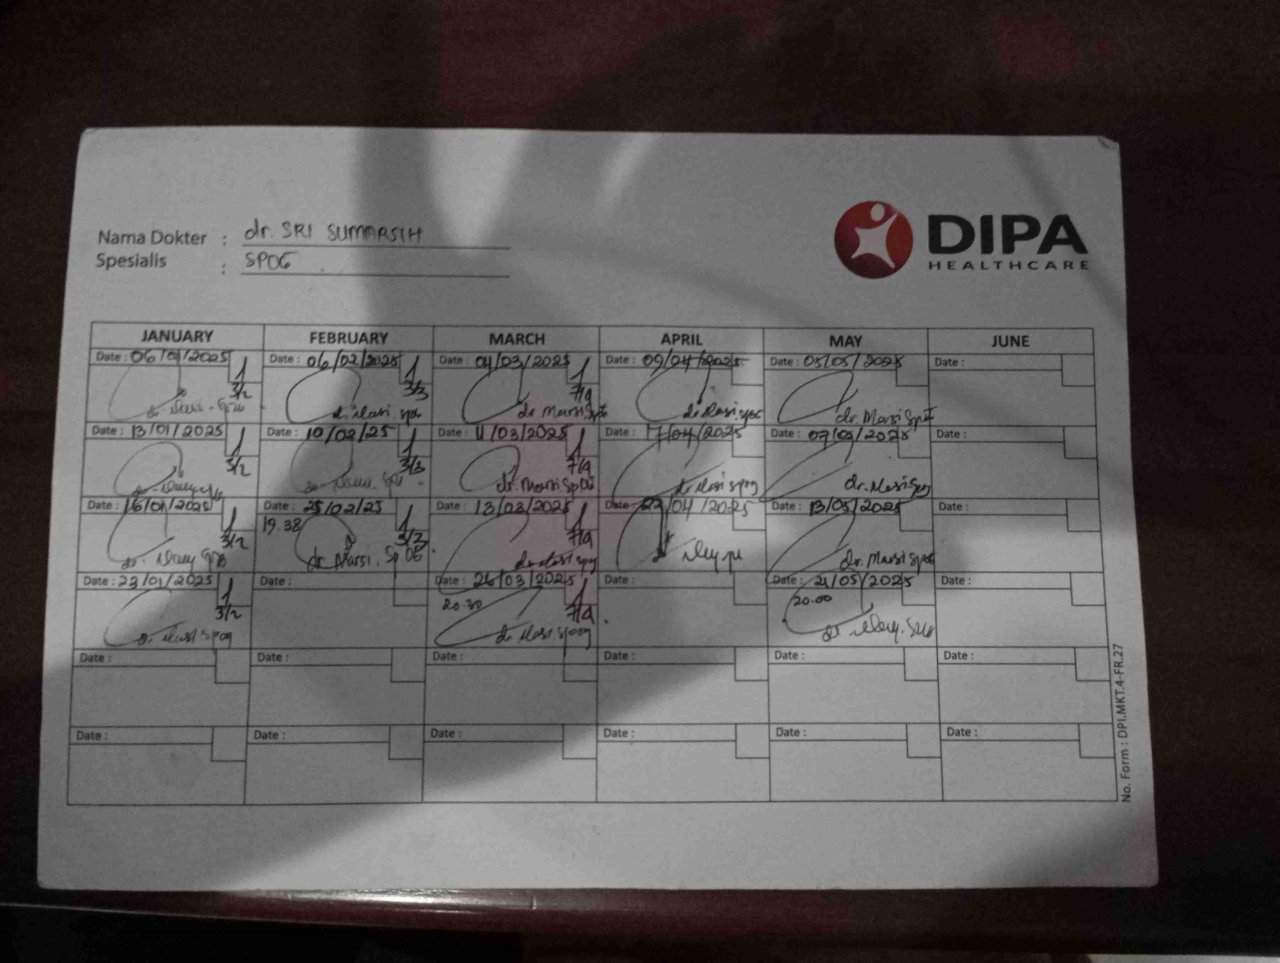 Nama Dokter : dr. SRI SUMARSIH
Spesialis : SPOG
DIPA
HEALTHCARE
JANUARY FEBRUARY MARCH APRIL MAY JUNE
Date : 06/01/2025 Date : 06/02/2025 Date : 04/03/2025 Date : 09/04/2025 Date : 05/05/2025 Date :
3/2 3/3 7/9
dr. Marsi. spog dr Marsi Spog dr. Marsi Spog
Date : 13/01/2025 Date : 10/02/25 Date : 11/03/2025 Date : 17/04/2025 Date : 07/05/2025 Date :
3/2 3/3 7/9
dr. Marsi SpOG dr Marsi spog dr. Marsi Spog
Date : 16/01/2025 Date : 25/02/25 Date : 13/03/2025 Date : 22/04/2025 Date : 13/05/2025 Date :
19.38
3/2 3/3 7/9
dr. Marsi. SpOG dr. Marsi spog dr. Marsi Spog
Date : 23/01/2025 Date : Date : 26/03/2025 Date : Date : 21/05/2025 Date :
20.30 20.00
3/2 7/9
dr. Marsi Spog dr Marsi spog
Date : Date : Date : Date : Date : Date :
Date : Date : Date : Date : Date : Date :
No. Form : DPI.MKT.4-FR.27